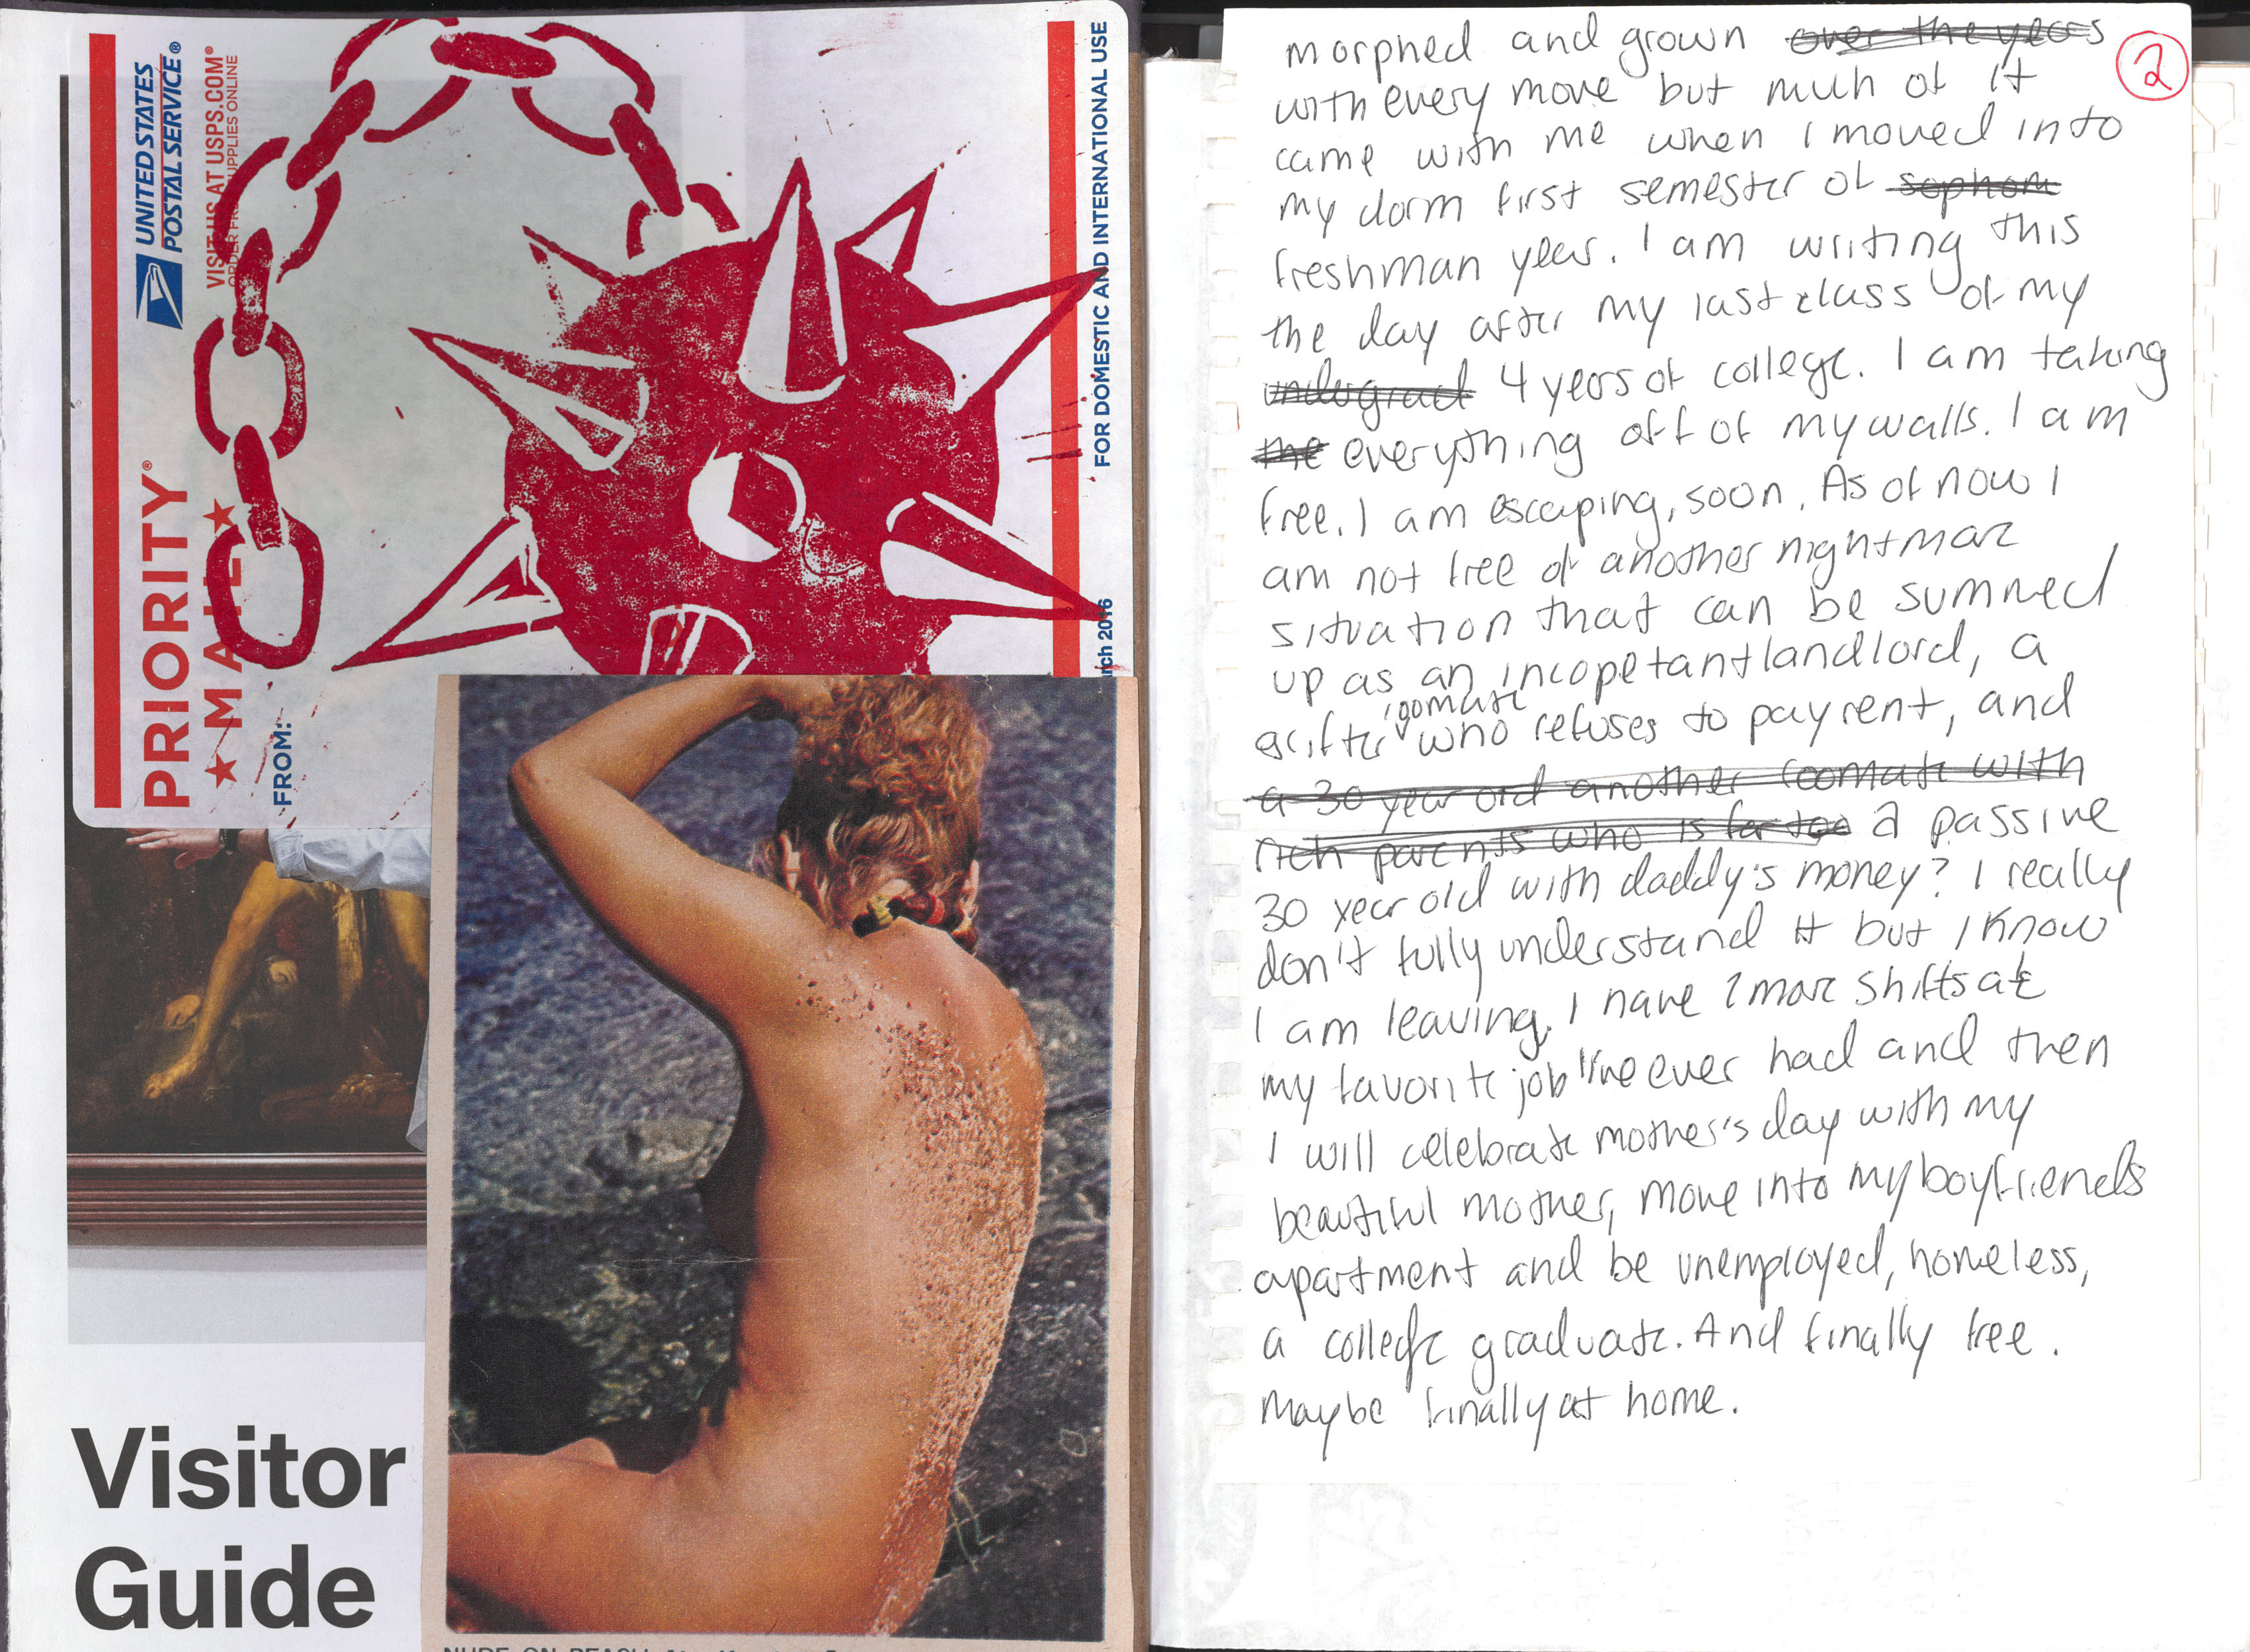 UNITED STATES
POSTAL SERVICE®
VISIT US AT USPS.COM®
PRIORITY®
★ MAIL ★
FROM:
FOR DOMESTIC AND INTERNATIONAL USE
rch 2016
Visitor
Guide
2
morphed and grown over the years
with every move but much of it
came with me when I moved into
my dorm first semester of sophom
freshman year. I am writing this
the day after my last class of my
undergrad 4 years of college. I am taking
the everything off of my walls. I am
free. I am escaping, soon. As of now I
am not free of another nightmare
situation that can be summed
up as an incopetant landlord, a
grifter roomate who refuses to pay rent, and
a 30 year old another roomate with
rich parents who is far too a passive
30 year old with daddy's money? I really
don't fully understand it but I know
I am leaving. I have 2 more shifts at
my favorite job I've ever had and then
I will celebrate mother's day with my
beautiful mother, move into my boyfriends
apartment and be unemployed, homeless,
a college graduate. And finally free.
Maybe finally at home.